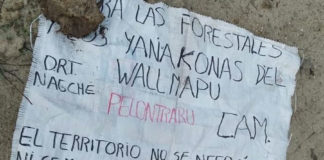 LAS FORESTALES
YANAKONAS DEL
WALLMAPU
DRT.
NAGCHE
PELONTRARU
CAM.
EL TERRITORIO NO SE